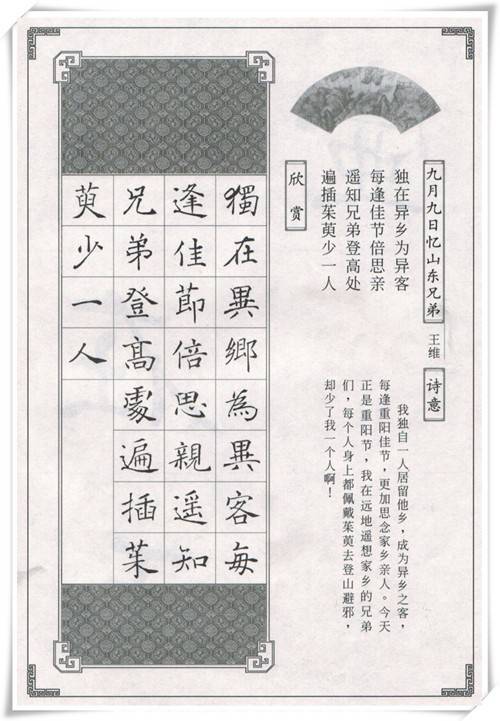 九月九日忆山东兄弟 王维
独在异乡为异客
每逢佳节倍思亲
遥知兄弟登高处
遍插茱萸少一人
诗意
我独自一人居留他乡，成为异乡之客，
每逢重阳佳节，更加思念家乡亲人。今天
正是重阳节，我在远地遥想家乡的兄弟
们，每个人身上都佩戴茱萸去登山避邪，
却少了我一个人啊！
欣赏
獨在異鄉為異客每
逢佳節倍思親遥知
兄弟登髙處遍插茱
萸少一人